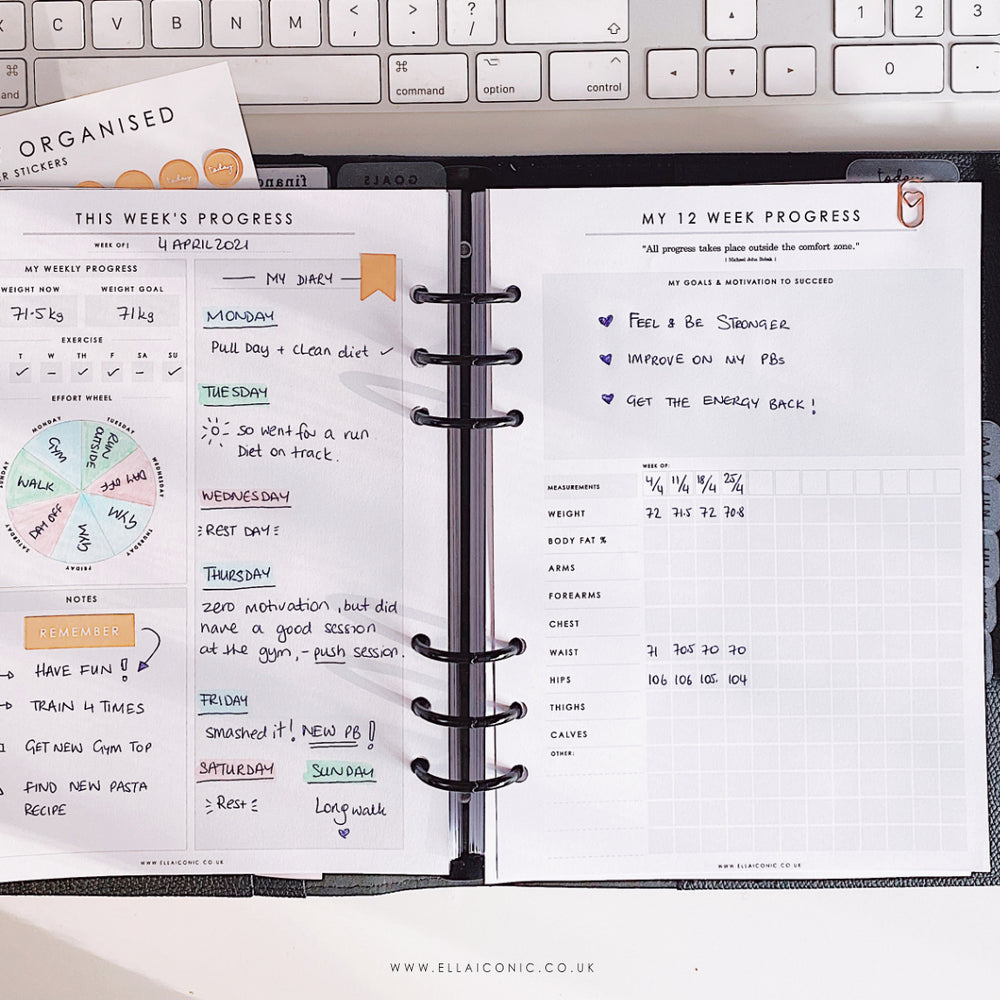 C V B N M < , > . ? /
1 2 3
⌘ command ⌥ option ^ control 0 .
and
ORGANISED
ER STICKERS
today today
financ
GOALS
today
THIS WEEK'S PROGRESS
WEEK OF: 4 APRIL 2021
MY WEEKLY PROGRESS
WEIGHT NOW WEIGHT GOAL
71.5kg 71kg
EXERCISE
T W TH F SA SU
✓ – ✓ ✓ – ✓
EFFORT WHEEL
MONDAY TUESDAY WEDNESDAY THURSDAY FRIDAY SATURDAY SUNDAY
GYM
RUN OUTSIDE
DAY OFF
GYM
GYM
DAY OFF
WALK
NOTES
REMEMBER
→ HAVE FUN!
→ TRAIN 4 TIMES
GET NEW GYM TOP
FIND NEW PASTA
RECIPE
MY DIARY
MONDAY
PULL DAY + CLEAN DIET ✓
TUESDAY
so went for a run
Diet on track.
WEDNESDAY
REST DAY
THURSDAY
zero motivation, but did
have a good session
at the gym, - push session.
FRIDAY
smashed it! NEW PB!
SATURDAY SUNDAY
Rest Long walk
WWW.ELLAICONIC.CO.UK
MY 12 WEEK PROGRESS
"All progress takes place outside the comfort zone."
| Michael John Bobak |
MY GOALS & MOTIVATION TO SUCCEED
FEEL & BE STRONGER
IMPROVE ON MY PBs
GET THE ENERGY BACK!
WEEK OF:
MEASUREMENTS 4/4 11/4 18/4 25/4
WEIGHT 72 71.5 72 70.8
BODY FAT %
ARMS
FOREARMS
CHEST
WAIST 71 70.5 70 70
HIPS 106 106 105. 104
THIGHS
CALVES
OTHER:
WWW.ELLAICONIC.CO.UK
MAY
JUN
JUL
WWW.ELLAICONIC.CO.UK